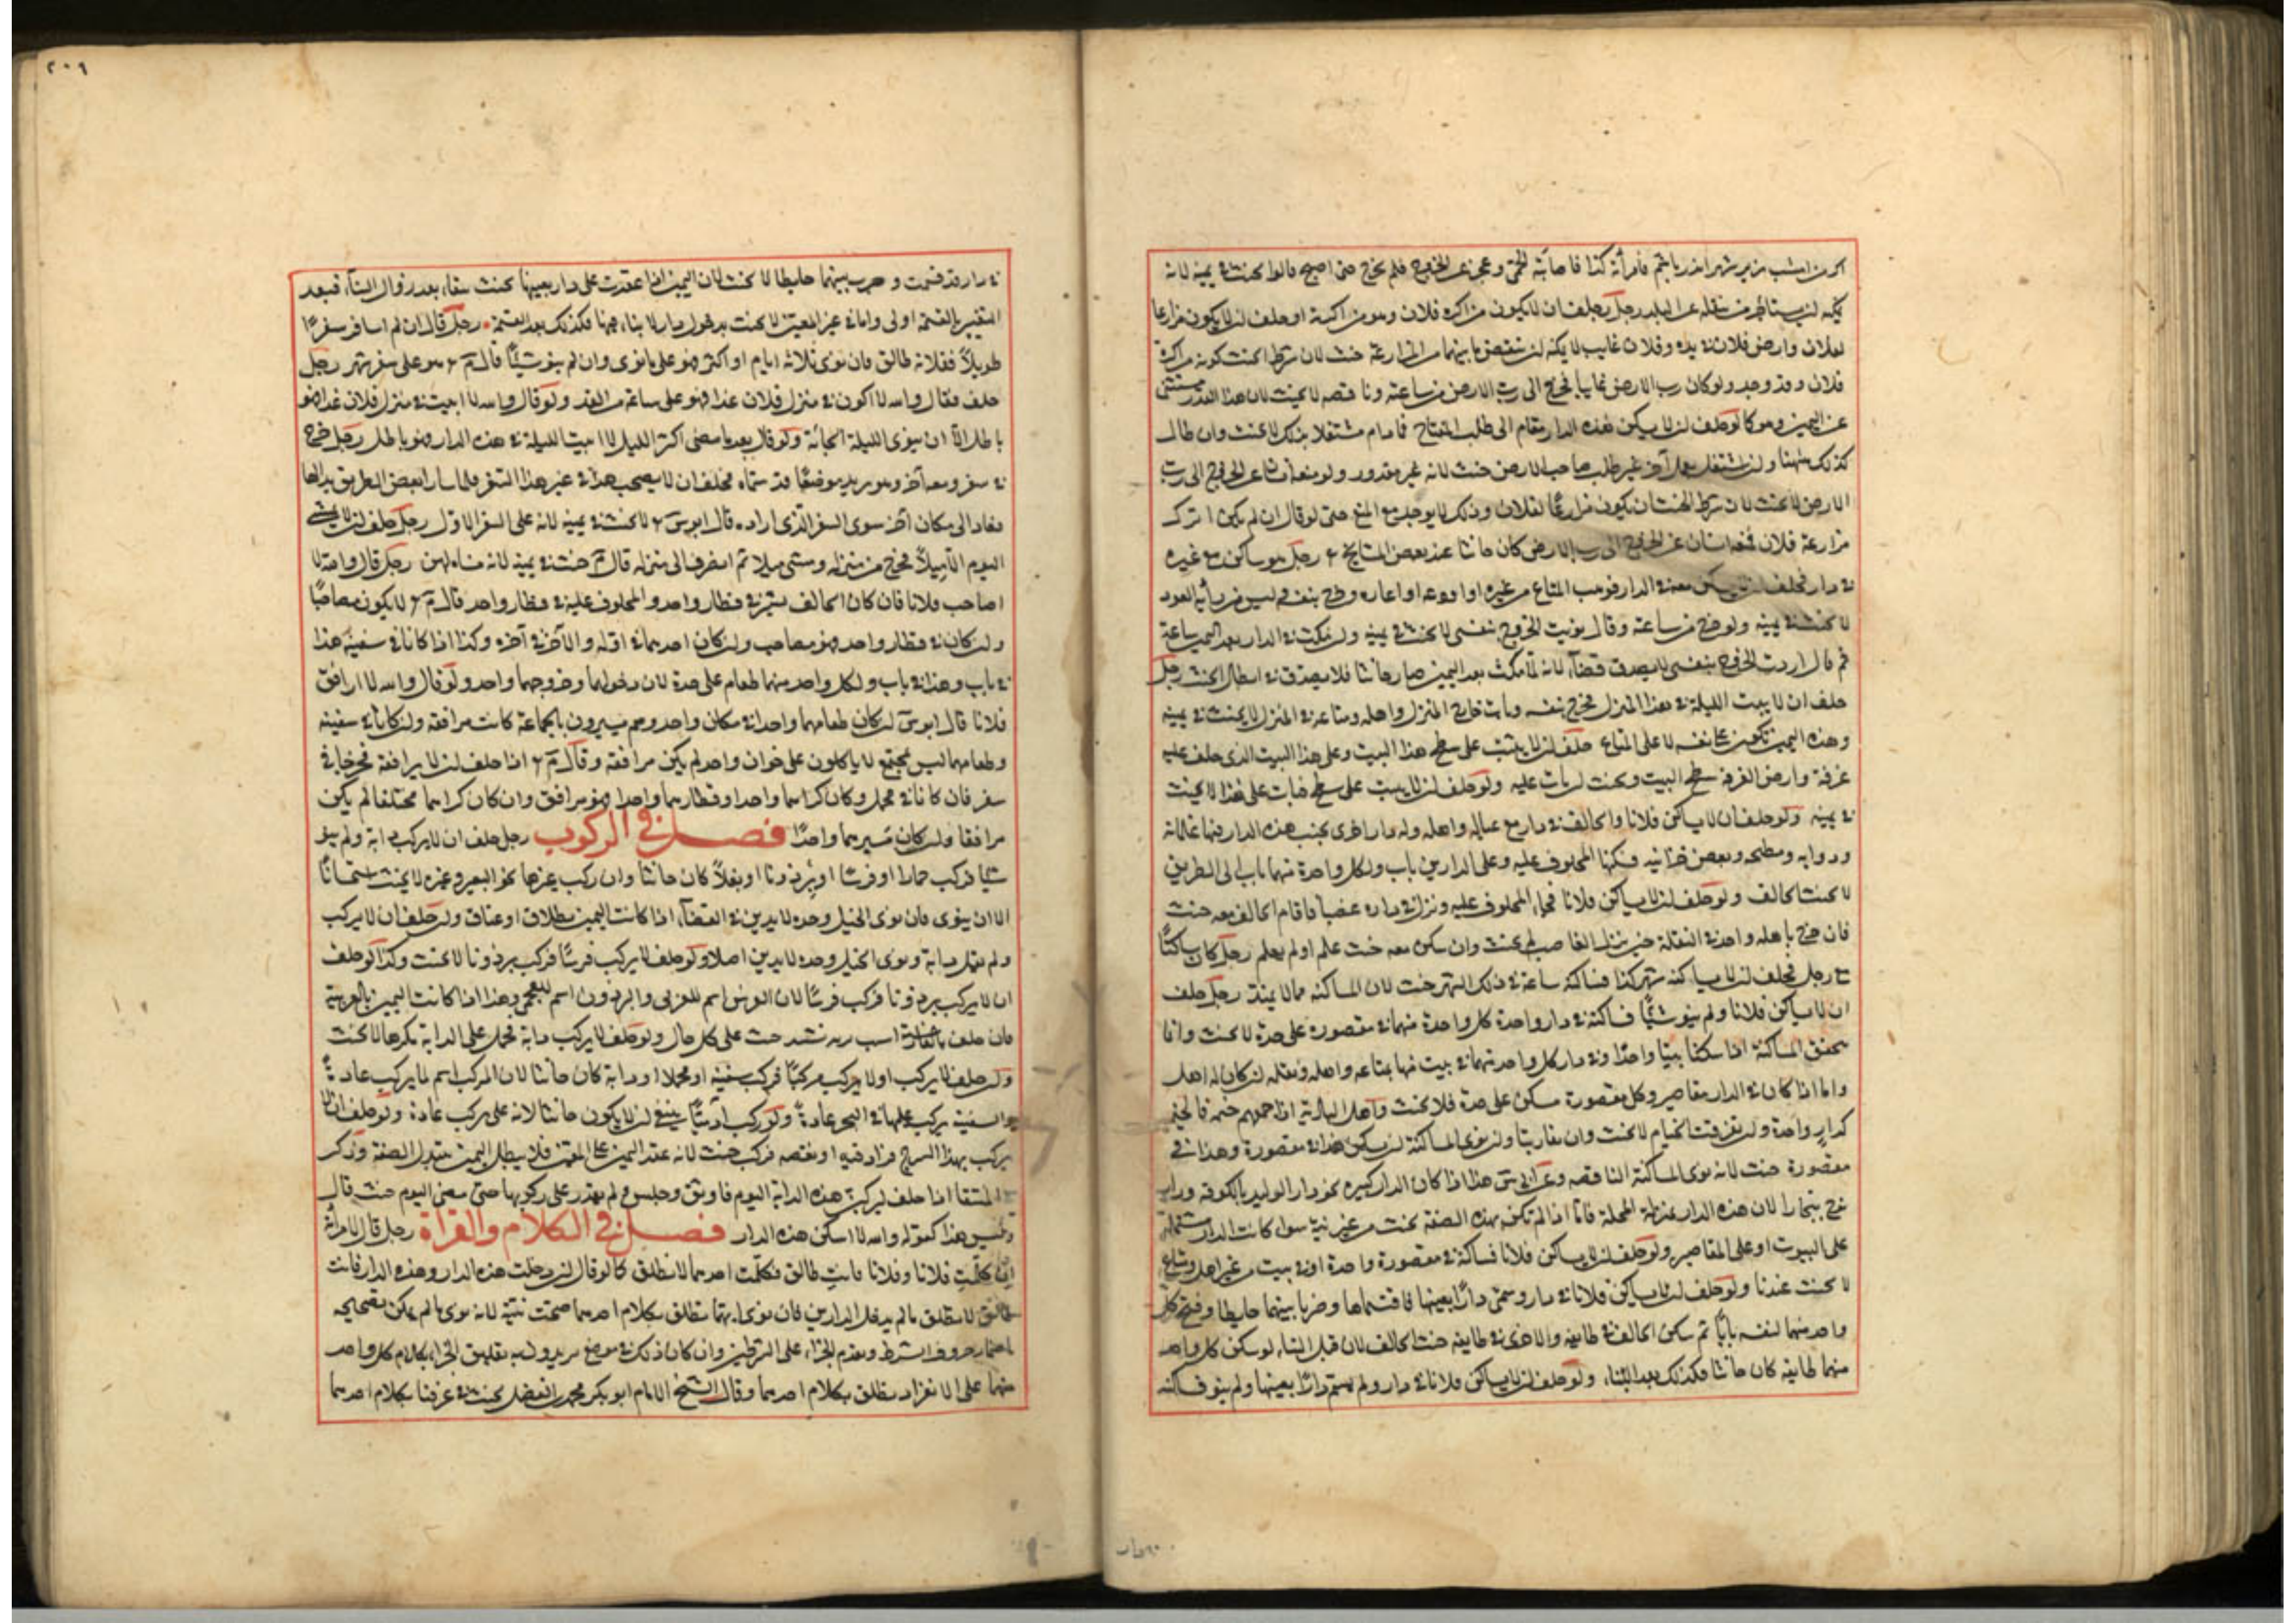 يمكنه ان يستاجر من ينقله عن البلد رجل حلف ان لا يكون من اكرة فلان وهو من اكرته او حلف ان لا يكون مزارعا
لفلان وارض فلان في يده وفلان غايب لا يمكنه ان ينقض ما بينهما من المزارعة حنث لان شرط الحنث كونه من اكرة
فلان وقد وجد ولو كان رب الارض غايبا فخرج الى رب الارض من ساعته وناقضه لا يحنث لان هذا القدر مستثنى
عن اليمين وهو كما لو حلف ان لا يسكن هذه الدار فقام الى طلب المفتاح فما دام مشتغلا بذلك لا يحنث وان طال
كذلك ههنا وان اشتغل بعمل آخر غير طلب صاحب الارض حنث لانه غير معذور ولو منعه انسان عن الخروج الى رب
الارض لا يحنث لان شرط الحنث ان يكون مزارعًا لفلان وذلك لا يوجد مع المنع حتى لو قال ان لم يكن اترك
مزارعة فلان فمنعه انسان عن الخروج الى رب الارض كان حانثا عند بعض المشايخ رجل هو ساكن مع غيره
في دار فحلف ان لا يسكن معه في الدار فوهب المتاع من غيره او اودعه او اعاره وخرج بنفسه ليس من رأيه العود
لا يحنث في يمينه ولو خرج من ساعته وقال نويت الخروج بنفسي لا يحنث في يمينه وان مكث في الدار بعد اليمين ساعة
ثم قال اردت الخروج بنفسي لا يصدق قضآء لانه لما مكث بعد اليمين صار حانثا فلا يصدق في ابطال الحنث رجل
حلف ان لا يبيت الليلة في هذا المنزل فخرج بنفسه وبات خارج المنزل واهله ومتاعه في المنزل لا يحنث في يمينه
وهذه اليمين تكون على نفسه لا على المتاع حلف ان لا يبيت على سطح هذا البيت وعلى هذا البيت الذي حلف عليه
غرفة وارض الغرفة سطح البيت يحنث ان بات عليه ولو حلف ان لا يبيت على سطح فبات على هذا لا يحنث
في يمينه ولو حلف ان لا يساكن فلانا والحالف في دار مع عياله واهله وله دار اخرى بجنب هذه الدار فيها غلمانه
ودوابه ومطبخه وبعض خزانيه فسكنها المحلوف عليه وعلى الدارين باب ولكل واحدة منهما باب الى الطريق
لا يحنث الحالف ولو حلف ان لا يساكن فلانا فجاء المحلوف عليه ونزل في داره غصبا فاقام الحالف معه حنث
فان خرج باهله واخذ في النقلة حين نزل الغاصب لم يحنث وان سكن معه حنث علم او لم يعلم رجل كان ساكنًا
مع رجل فحلف ان لا يساكنه شهر كذا فساكنه ساعة في ذلك الشهر حنث لان المساكنة مما لا يمتد رجل حلف
ان لا يساكن فلانا ولم ينو شيئًا فساكنه في دار واحدة كل واحدة منهما في مقصورة على حدة لا يحنث وانما
تتحقق المساكنة اذا سكنا بيتا واحدًا او في دار كل واحد منهما في بيت منها بمتاعه واهله وثقله ان كان له اهل
واما اذا كان في الدار مقاصير وكل مقصورة مسكن على حدة فلا يحنث واهل البادية اذا جمعهم خيمة فالخيم
كدار واحدة وان تفرقت الخيام لا يحنث وان تقاربتا وان نوى المساكنة ان يسكن هذا في مقصورة وهذا في
مقصورة حنث لانه نوى المساكنة الناقصة وعن ابي س هذا اذا كان الدار كبيره نحو دار الوليد بالكوفة ودار
نوح ببخارا لان هذه الدار بمنزلة المحلة فاما اذا لم تكن بهذه الصفة يحنث من غير نية سوا كانت الدار مشتملة
على البيوت او على المقاصير ولو حلف ان لا يساكن فلانا فساكنه في مقصورة واحدة او في بيت من غير اهل ومتاع
لا يحنث عندنا ولو حلف ان لا يساكن فلانا في دار وسمى دارًا بعينها فاقتسماها وضربا بينهما حايطا وفتح كل
واحد منهما لنفسه بابًا ثم سكن الحالف في طايفة والاخر في طايفة حنث الحالف لان قبل البناء لو سكن كل واحد
منهما طايفة كان حانثا فكذلك بعد البناء ولو حلف ان لا يساكن فلانا في دار ولم يسم دارًا بعينها ولم ينو فساكنه
٢٠٩
في دار قد قسمت وضرب بينهما حايطا لا يحنث لان اليمين اذا عقدت على دار بعينها يحنث سقاء بعد زوال البناء فبعد
التغيير بالقسمة اولى واما في غير المعين لا يحنث بدخول دار لا بناء فيها فكذلك بعد القسمة رجل قال ان لم اسافر سفرًا
طويلاً ففلانة طالق فان نوى ثلاثة ايام او اكثر فهو على ما نوى وان لم ينو شيئًا قال م هو على سفر شهر رجل
حلف فقال والله لا اكون في منزل فلان غدا فهو على ساعة من الغد ولو قال والله لا ابيت في منزل فلان غدا فهو
باطل الآ ان ينوى الليلة الجائية ولو قال بعد ما مضى اكثر الليل لا ابيت الليلة في هذه الدار فهو باطل رجل خرج
في سفر ومعه آخر وهو يريد موضعًا قد سماه فحلف ان لا يصحب هذا في غير هذا السفر فلما سارا بعض الطريق بدا لهما
فعادا الى مكان آخر سوى السفر الذي اراده قال ابو س لا يحنث في يمينه لانه على السفر الاول رجل حلف ان لا يمشي
اليوم الا ميلاً فخرج من منزله ومشى ميلا ثم انصرف الى منزله قال م حنث في يمينه لانه مشى ميلين رجل قال والله لا
اصاحب فلانا فان كان الحالف يسير في قطار واحد والمحلوف عليه في قطار واحد قال م لا يكون مصاحبًا
وان كان في قطار واحد فهو مصاحب وان كان احدهما في اوله والآخر في آخره وكذا اذا كانا في سفينة هذا
في باب وهذا في باب ولكل واحد منهما طعام على حدة لان دخولهما وخروجهما واحد ولو قال والله لا ارافق
فلانا قال ابو س ان كان طعامهما واحدا في مكان واحد وهم يسيرون بالجماعة كانت مرافقة وان كانا في سفينة
وطعامهما ليس بمجتمع لا ياكلون على خوان واحد لم يكن مرافقة وقال م اذا حلف ان لا يرافقه فخرجا في
سفر فان كانا في محمل وكان كراهما واحدا وقطارهما واحدا فهو مرافق وان كان كراهما مختلفا لم يكن
مرافقا وان كان مسيرهما واحدًا فصل في الركوب رجل حلف ان لا يركب دابة ولم ينو
شيئا فركب حمارا او فرسًا او برذونا او بغلاً كان حانثا وان ركب غيرها نحو البعير وغيره لا يحنث استحسانًا
الا ان ينوى فان نوى الخيل وحده لا يدين في القضآء اذا كانت اليمين بطلاق او عتاق وان حلف ان لا يركب
ولم يقل دابة ونوى الخيل وحده لا يدين اصلا ولو حلف لا يركب فرسًا فركب برذونا لا يحنث وكذا لو حلف
ان لا يركب برذونا فركب فرسًا لان الفرس اسم للعربي والبرذون اسم للعجمي وهذا اذا كانت اليمين بالعربية
فان حلف بالفارسية اسب بر ننشيند حنث على كل حال ولو حلف لا يركب دابة فحمل على الدابة مكرها لا يحنث
وان حلف لا يركب او لا يركب مركبًا فركب سفينة او محملا او دابة كان حانثا لان المركب اسم لما يركب عادةً
والسفينة يركب عليها في البحر عادةً ولو ركب آدميًّا ينبغي ان لا يكون حانثا لانه على يركب عادة ولو حلف ان لا
يركب بهذا السرج فزاد فيه او نقصه فركب حنث لانه عقد اليمين على المعين فلا يبطل اليمين بتبدل الصفة وذكر
في المنتقا اذا حلف ليركبن هذه الدابة اليوم فاوثق وحبس ولم يقدر على ركوبها حتى مضى اليوم حنث قال
وليس هذا كقوله والله لا اسكن هذه الدار فصل في الكلام والقراة رجل قال لامرأته
ان كلمت فلانا وفلانا فانت طالق فكلمت احدهما لا تطلق كما لو قال ان دخلت هذه الدار وهذه الدار فانت
طالق لا تطلق ما لم يدخل الدارين فان نوى انها تطلق بكلام احدهما صحت نيته لانه نوى ما لم يمكن تصحيحه
باضمار حرف الشرط وتقدم الجزاء على الشرطين وان كان ذلك في موضع يريدون به تعليق الجزاء بكلام كل واحد
منهما على الانفراد يطلق بكلام احدهما وقال الشيخ الامام ابو بكر محمد بن الفضل يحنث في عرفنا بكلام احدهما